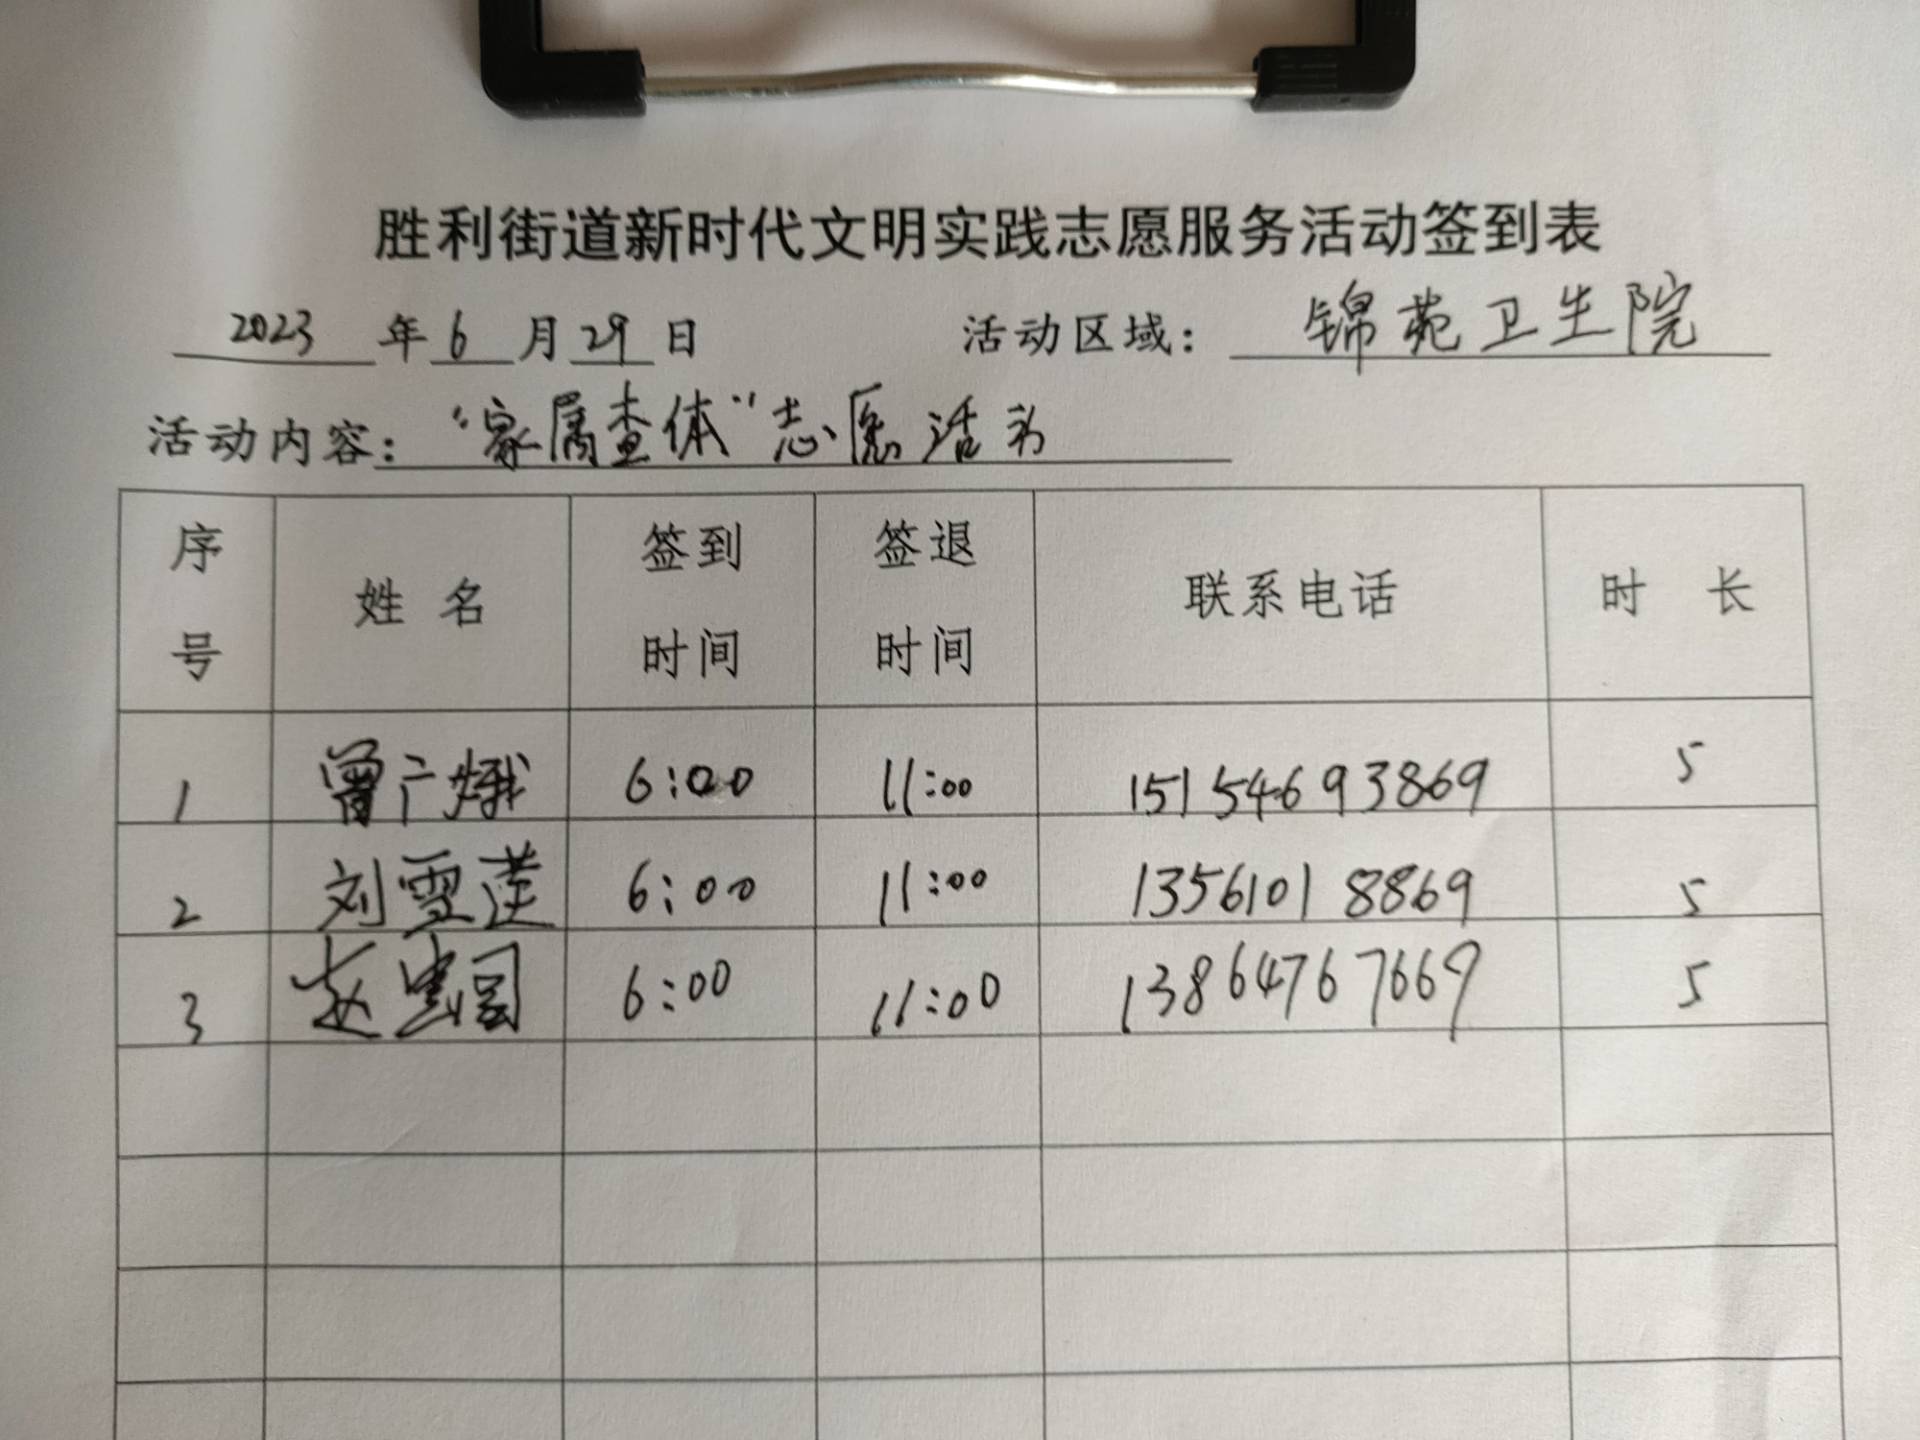 胜利街道新时代文明实践志愿服务活动签到表
2023 年 6 月 29 日 活动区域: 锦苑卫生院
活动内容: "家属查体"志愿活动
序号 姓名 签到时间 签退时间 联系电话 时长
1 曾广娥 6:00 11:00 15154693869 5
2 刘雪莲 6:00 11:00 13561018869 5
3 赵 6:00 11:00 13864767669 5